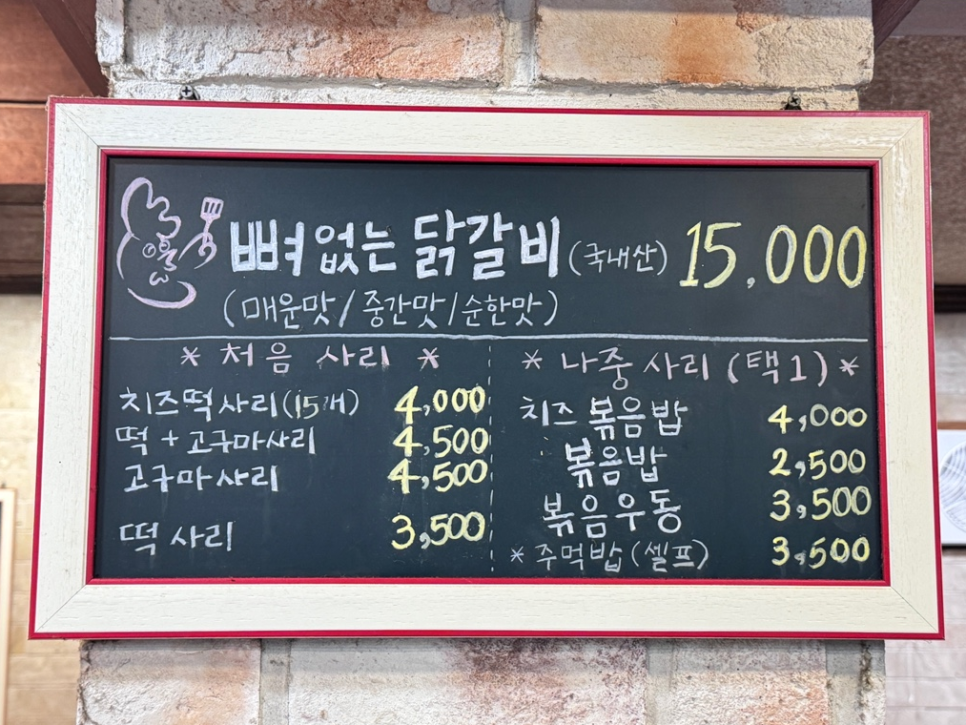 뼈없는 닭갈비 (국내산) 15,000
(매운맛/중간맛/순한맛)
* 처음 사리 *
치즈떡사리(15개) 4,000
떡+고구마사리 4,500
고구마사리 4,500
떡사리 3,500
* 나중 사리 (택1) *
치즈 볶음밥 4,000
볶음밥 2,500
볶음우동 3,500
* 주먹밥(셀프) 3,500